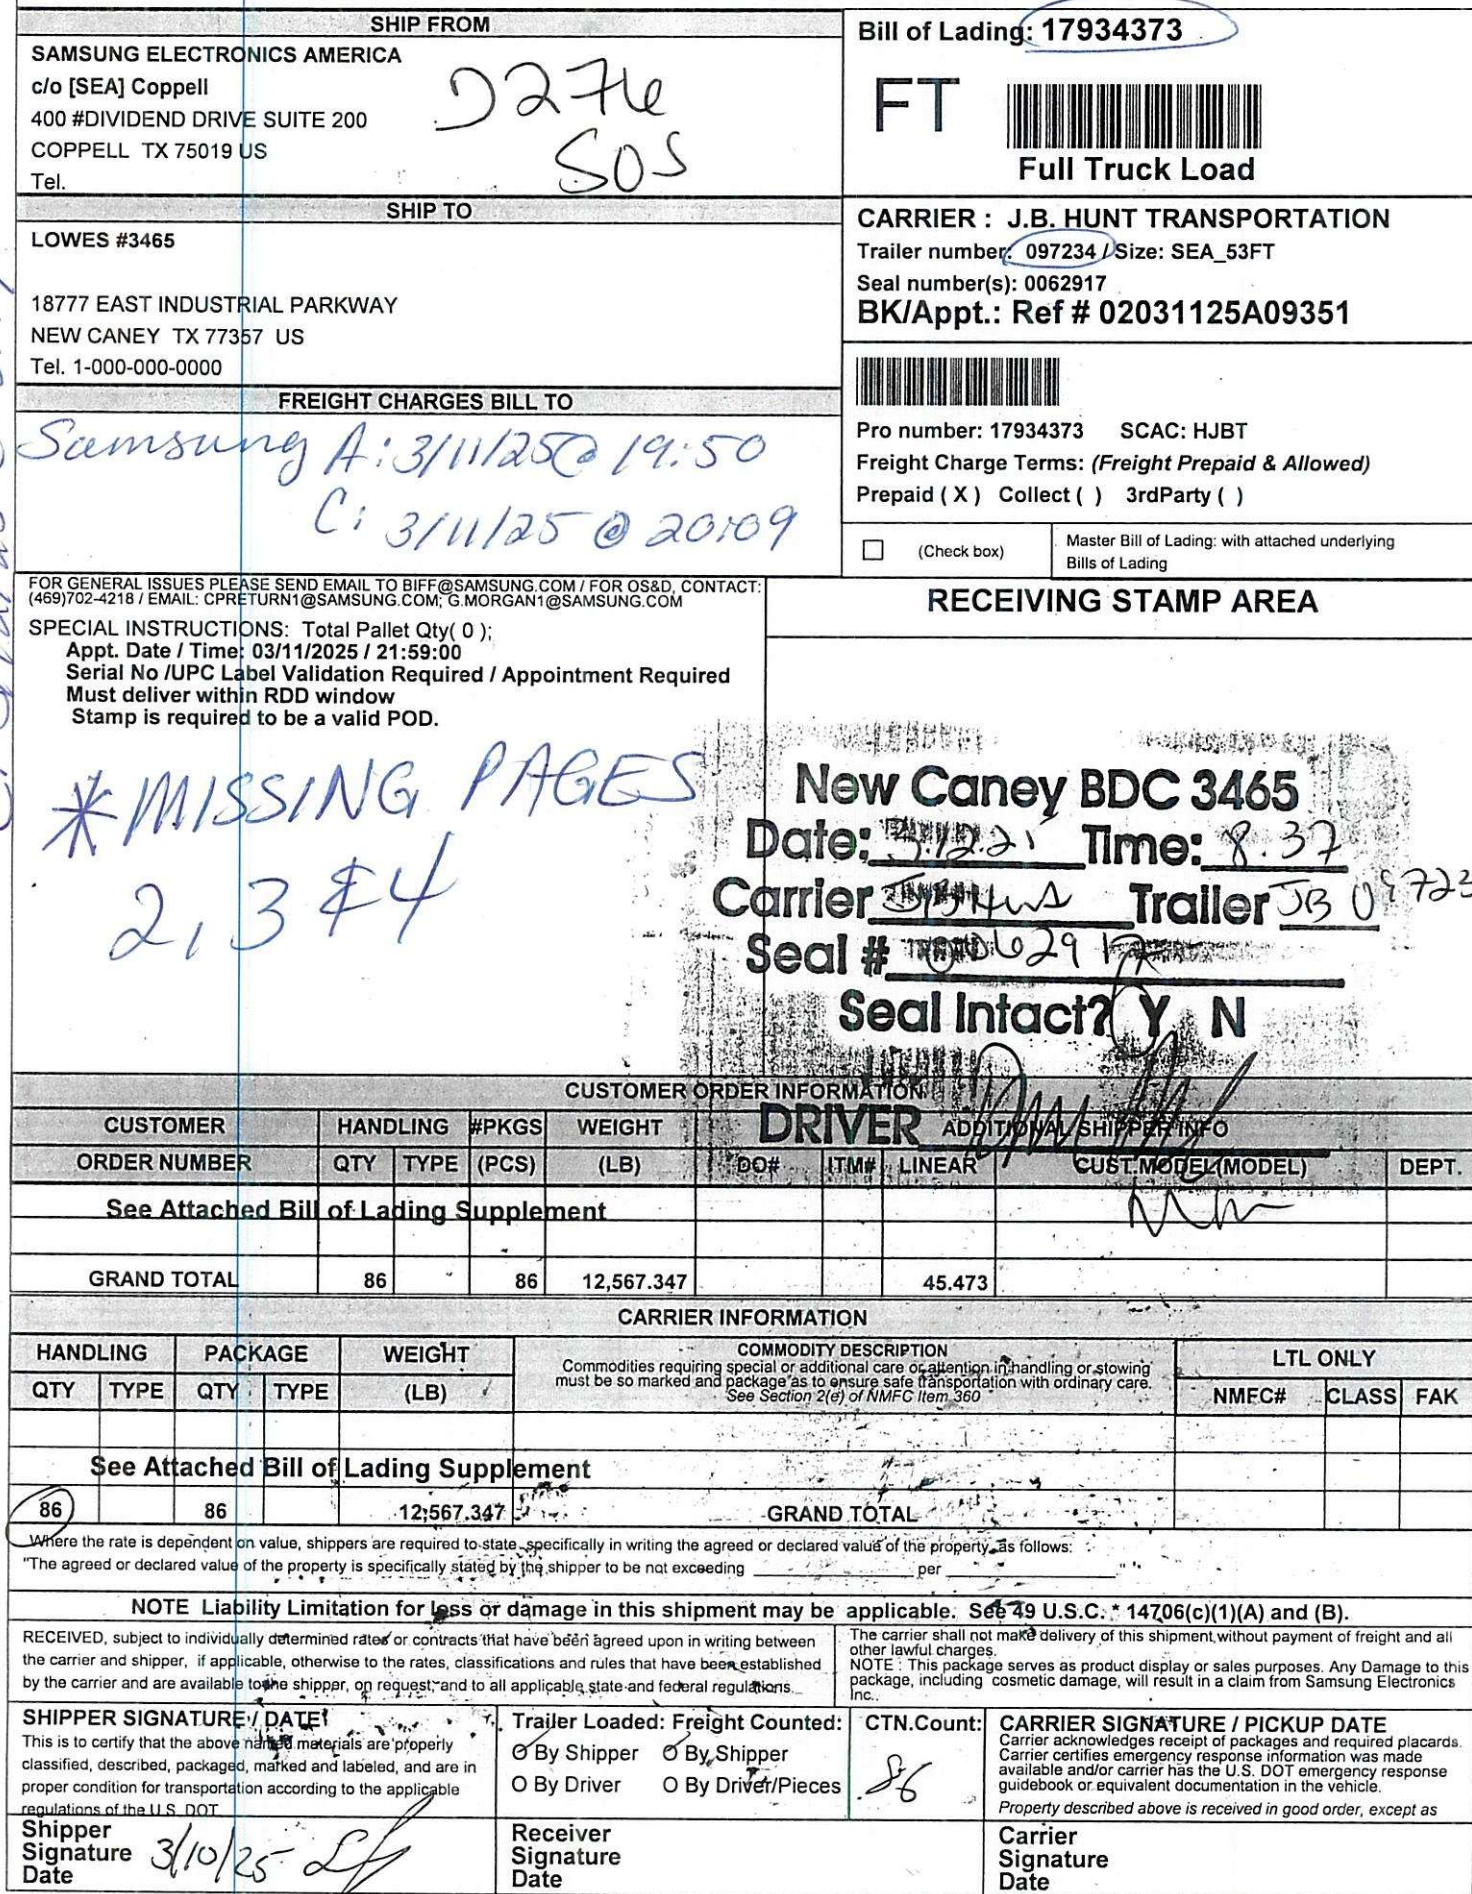 SHIP FROM
SAMSUNG ELECTRONICS AMERICA
c/o [SEA] Coppell
400 #DIVIDEND DRIVE SUITE 200
COPPELL TX 75019 US
Tel.
D276
SOS
Bill of Lading: 17934373
FT
Full Truck Load
SHIP TO
LOWES #3465
18777 EAST INDUSTRIAL PARKWAY
NEW CANEY TX 77357 US
Tel. 1-000-000-0000
CARRIER : J.B. HUNT TRANSPORTATION
Trailer number: 097234 / Size: SEA_53FT
Seal number(s): 0062917
BK/Appt.: Ref # 02031125A09351
FREIGHT CHARGES BILL TO
Samsung A: 3/11/25 @ 19:50
C: 3/11/25 @ 20:09
Pro number: 17934373 SCAC: HJBT
Freight Charge Terms: (Freight Prepaid & Allowed)
Prepaid ( X ) Collect ( ) 3rdParty ( )
(Check box)
Master Bill of Lading: with attached underlying
Bills of Lading
FOR GENERAL ISSUES PLEASE SEND EMAIL TO BIFF@SAMSUNG.COM / FOR OS&D, CONTACT:
(469)702-4218 / EMAIL: CPRETURN1@SAMSUNG.COM; G.MORGAN1@SAMSUNG.COM
SPECIAL INSTRUCTIONS: Total Pallet Qty( 0 );
Appt. Date / Time: 03/11/2025 / 21:59:00
Serial No /UPC Label Validation Required / Appointment Required
Must deliver within RDD window
Stamp is required to be a valid POD.
* MISSING PAGES
2, 3 & 4
RECEIVING STAMP AREA
New Caney BDC 3465
Date: Time: 8.37
Carrier Trailer JB
Seal # 0062917
Seal Intact? Y N
DRIVER
CUSTOMER ORDER INFORMATION
CUSTOMER HANDLING #PKGS WEIGHT ADDITIONAL SHIPPER INFO
ORDER NUMBER QTY TYPE (PCS) (LB) DO# ITM# LINEAR CUST.MODEL(MODEL) DEPT.
See Attached Bill of Lading Supplement
GRAND TOTAL 86 86 12,567.347 45.473
CARRIER INFORMATION
HANDLING PACKAGE WEIGHT COMMODITY DESCRIPTION LTL ONLY
Commodities requiring special or additional care or attention in handling or stowing
must be so marked and package as to ensure safe transportation with ordinary care.
See Section 2(e) of NMFC Item 360
QTY TYPE QTY TYPE (LB) NMFC# CLASS FAK
See Attached Bill of Lading Supplement
86 86 12,567.347 GRAND TOTAL
Where the rate is dependent on value, shippers are required to state specifically in writing the agreed or declared value of the property as follows:
"The agreed or declared value of the property is specifically stated by the shipper to be not exceeding ____ per ____ "
NOTE Liability Limitation for loss or damage in this shipment may be applicable. See 49 U.S.C. * 14706(c)(1)(A) and (B).
RECEIVED, subject to individually determined rates or contracts that have been agreed upon in writing between
the carrier and shipper, if applicable, otherwise to the rates, classifications and rules that have been established
by the carrier and are available to the shipper, on request, and to all applicable state and federal regulations.
The carrier shall not make delivery of this shipment without payment of freight and all
other lawful charges.
NOTE : This package serves as product display or sales purposes. Any Damage to this
package, including cosmetic damage, will result in a claim from Samsung Electronics
Inc..
SHIPPER SIGNATURE / DATE
This is to certify that the above named materials are properly
classified, described, packaged, marked and labeled, and are in
proper condition for transportation according to the applicable
regulations of the U.S. DOT
Trailer Loaded: Freight Counted:
O By Shipper O By Shipper
O By Driver O By Driver/Pieces
CTN.Count:
86
CARRIER SIGNATURE / PICKUP DATE
Carrier acknowledges receipt of packages and required placards.
Carrier certifies emergency response information was made
available and/or carrier has the U.S. DOT emergency response
guidebook or equivalent documentation in the vehicle.
Property described above is received in good order, except as
Shipper
Signature 3/10/25
Date
Receiver
Signature
Date
Carrier
Signature
Date